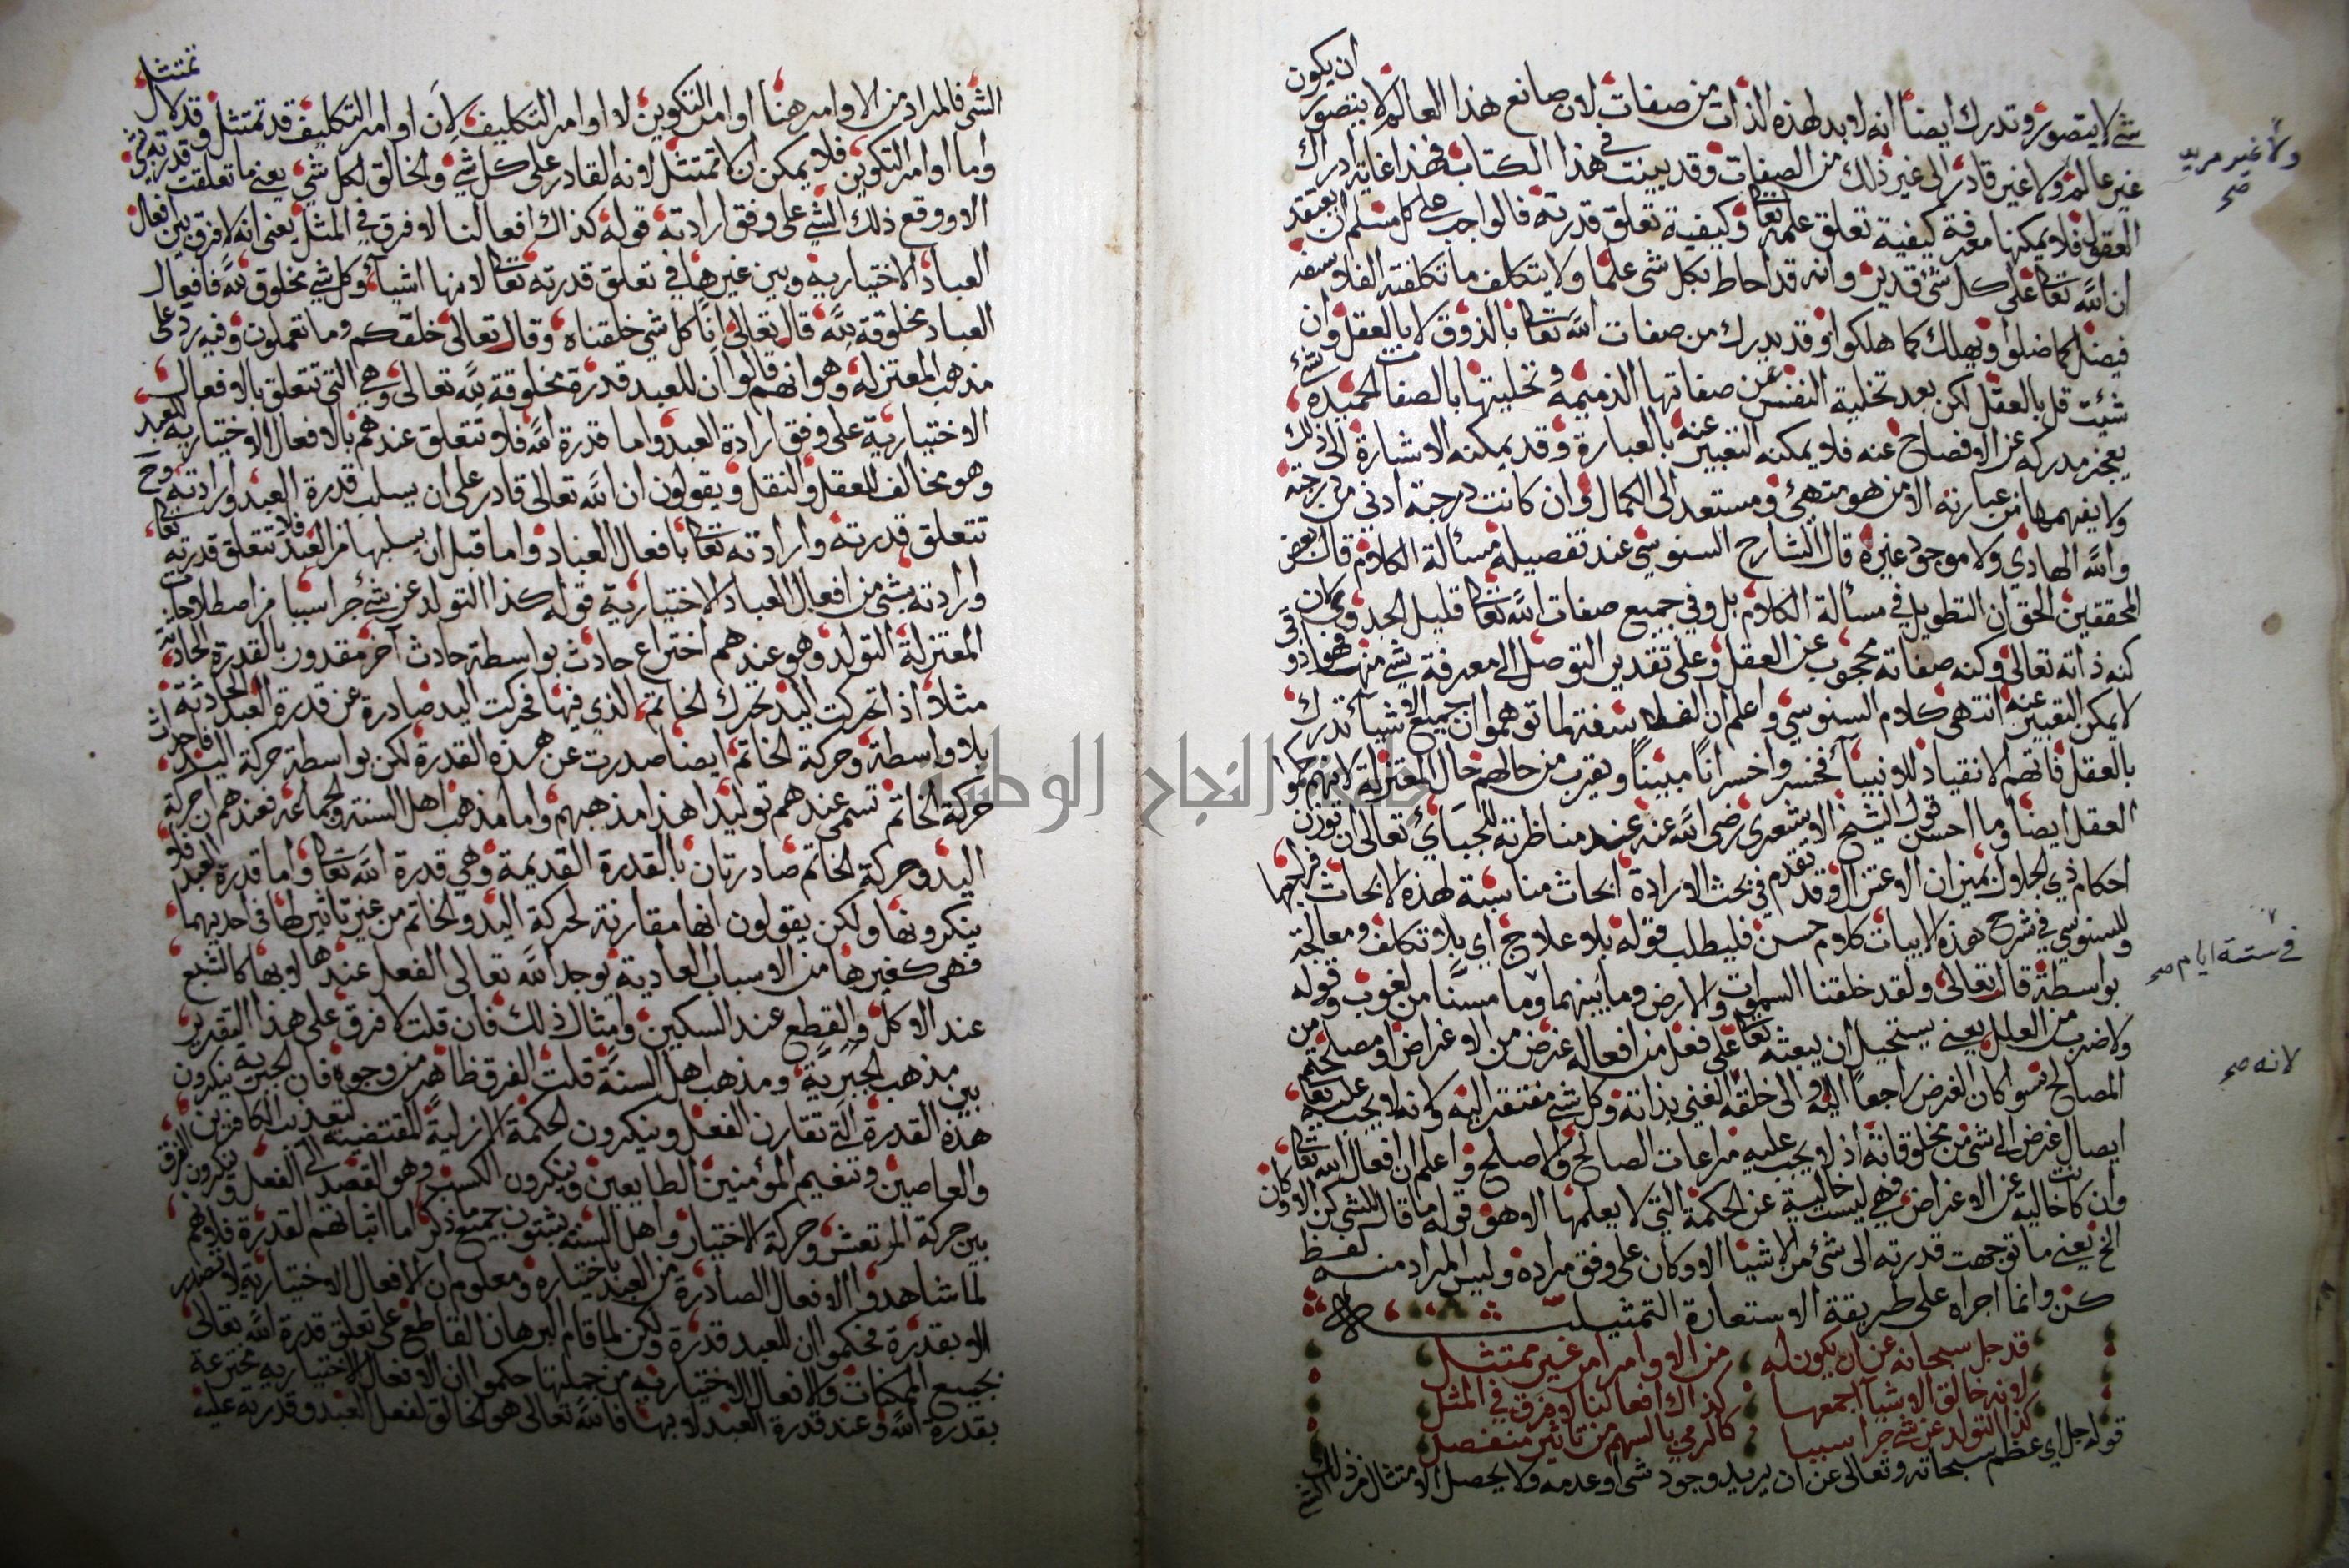 شئ لا يتصور وتدرك ايضا انه لا بد لهذه الذات من صفات لان صانع هذا العالم لا يتصور ان يكون
غير عالم ولا غير قادر الى غير ذلك من الصفات وقد بينت في هذا الكتاب فهذا غاية ادراك
ولا غير مريد صح
العقول فلا يمكنها معرفة كيفية تعلق علمه تعالى وكيفية تعلق قدرته فالواجب على كل مسلم ان يعتقد
ان الله تعالى على كل شئ قدير وانه قد احاط بكل شئ علما ولا يتكلف ما تكلفته الفلاسفه
فيضل كما ضلوا ويهلك كما هلكوا وقد يدرك من صفات الله تعالى بالذوق لا بالعقل وان
شئت قل بالعقل لكن بعد تخلية النفس عن صفاتها الذميمه وتحليتها بالصفات الحميده شئ
يعجز مدركه عن الافصاح عنه فلا يمكنه التعبير عنه بالعبارة وقد يمكنه الاشارة الى ذلك
ولا يفهمها من عبارته الا من هو متهئ ومستعد الى الكمال وان كانت درجة ادنى من درجته
والله الهادي ولا موجود غيره قال الشارح السنوسي عند تفصيله مسألة الكلام قال بعض
المحققين الحق ان التطويل في مسألة الكلام بل وفي جميع صفات الله تعالى قليل الجدوى لان
كنه ذاته تعالى وكنه صفاته محجوب عن العقل وعلى تقدير التوصل الى معرفة شئ منها فهو ذوقي
لا يمكن التعبير عنه انتهى كلام السنوسي واعلم ان الفلاسفة لما توهموا ان جميع الاشيآء تدرك
بالعقل فاتهم الانقياد للانبيآء فخسروا خسرانا مبينا ويقرب من حالهم حال المعتزلة لانهم حكموا
العقل ايضا وما احسن قول الشيخ الاشعري رضى الله عنه عند مناظرته للجبآئي تعالى ان توزن
احكام ذي الجلال بميزان الاعتزال وقد تقدم في بحث الارادة ابحاث مناسبة لهذه الابحاث فراجعها
وللسنوسي في شرح هذه الابيات كلام حسن فليطلب قوله بلا علاج اي بلا تكلف ومعالجة
بواسطة قال تعالى ولقد خلقنا السموات والارض وما بينهما وما مسنا من لغوب وقوله
في ستة ايام صح
ولا ضرب من العلل يعني يستحيل ان يبعثه تعالى على فعل من افعاله غرض من الاغراض او مصلحة من
المصالح سوآ كان الغرض راجعا اليه او الى خلقه الغني بذاته وكل شئ مفتقر اليه ولانه لا يجب عليه تعالى
لانه صح
ايصال غرض الى شئ من مخلوقاته اذ لا يجب عليه مراعات الصالح والاصلح واعلم ان افعال الله تعالى
وان كانت خالية عن الاغراض فهي ليست خالية عن الحكمة التي لا يعلمها الا هو قوله ما قال للشي كن الا وكان
الخ يعني ما توجهت قدرته الى شئ من الاشيا الا وكان على وفق مراده وليس المراد منه لفظ
كن وانما اجراه على طريقة الاستعارة التمثيليه
قد جل سبحانه عن ان يكون له من الاوامر امر غير ممتثل
لانه خالق الاشيآ اجمعها كذاك افعالنا لا فرق في المثل
كذا التولد عن شئ جرا سببا كالرمي بالسهم من تاثير منفصل
قوله جل اي عظم سبحانه وتعالى عن ان يريد وجود شئ او عدمه ولا يحصل الامتثال من ذلك الشئ
الشئ فالمراد من الاوامر هنا اوامر التكوين لا اوامر التكليف لأن اوامر التكليف قد تمتثل وقد لا تمتثل
واما اوامر التكوين فلا يمكن ان لا تمتثل لانه القادر على كل شئ والخالق لكل شئ يعني ما تعلقت قدرته بشئ
الا ووقع ذلك الشئ على وفق ارادته قوله كذاك افعالنا لا فرق في المثل يعنى انه لا فرق بين افعال
العباد الاختياريه وبين غيرها في تعلق قدرته تعالى لانها اشيآء وكل شئ مخلوق لله فافعال
العباد مخلوقة لله قال تعالى انا كل شئ خلقناه وقال تعالى خلقكم وما تعملون وفيه رد على
مذهب المعتزله وهو انهم قالوا ان للعبد قدرة مخلوقة لله تعالى وهي التي تتعلق بالافعال
الاختيارية على وفق ارادة العبد واما قدرة الله فلا تتعلق عندهم بالافعال الاختياريه للعبد
وهو مخالف للعقل والنقل ويقولون ان الله تعالى قادر على ان يسلب قدرة العبد وارادته وح
تتعلق قدرته وارادته تعالى بافعال العباد واما قبل ان يسلبها من العبد فلا تتعلق قدرته تعالى
وارادته بشئ من افعال العباد الاختيارية قوله كذا التولد عن شئ جرا سببا من اصطلاحات
المعتزلة التولد وهو عندهم اختراع حادث بواسطة حادث آخر مقدور بالقدرة الحادثة
مثلا اذا تحركت اليد تحرك الخاتم الذي فيها فحركت اليد صادرة عن قدرة العبد الحادثة
بلا واسطة وحركة الخاتم ايضا صدرت عن هذه القدرة لكن بواسطة حركة اليد فاحداث
حركة الخاتم تسمى عندهم توليدا هذا مذهبهم واما مذهب اهل السنة والجماعه فعندهم ان حركة
اليد وحركة الخاتم صادرتان بالقدرة القديمة وهي قدرة الله تعالى واما قدرة العبد فلا
ينكرونها ولكن يقولون انها مقارنة لحركة اليد والخاتم من غير تاثير لها في احديهما
فهي كغيرها من الاسباب العادية يوجد الله تعالى الفعل عندها لا بها كالشبع
عند الاكل والقطع عند السكين وامثال ذلك فان قلت لا فرق على هذا التقدير
بين مذهب الجبرية ومذهب اهل السنة قلت الفرق ظاهر من وجوه فان الجبرية ينكرون
هذه القدرة التي تقارن الفعل وينكرون الحكمة الازلية المقتضية لتعذيب الكافرين
والعاصين وتنعيم المؤمنين الطايعين وينكرون الكسب وهو القصد الى الفعل وينكرون الفرق
بين حركة المرتعش وحركة الاختيار واهل السنه يثبتون جميع ما ذكر اما اثباتهم القدرة فلانهم
لما شاهدوا الافعال الصادرة من العبد باختياره ومعلوم ان الافعال الاختيارية لا تصدر
الا بقدرة فحكموا ان للعبد قدرة ولكن لما قام البرهان القاطع على تعلق قدرة الله تعالى
بجميع الممكنات والافعال الاختياريه من جملتها حكموا ان الافعال الاختياريه مخترعة
بقدرة الله وعند قدرة العبد لا بها فالله تعالى هو الخالق لفعل العبد وقدرته عليه
جامعة النجاح الوطنية